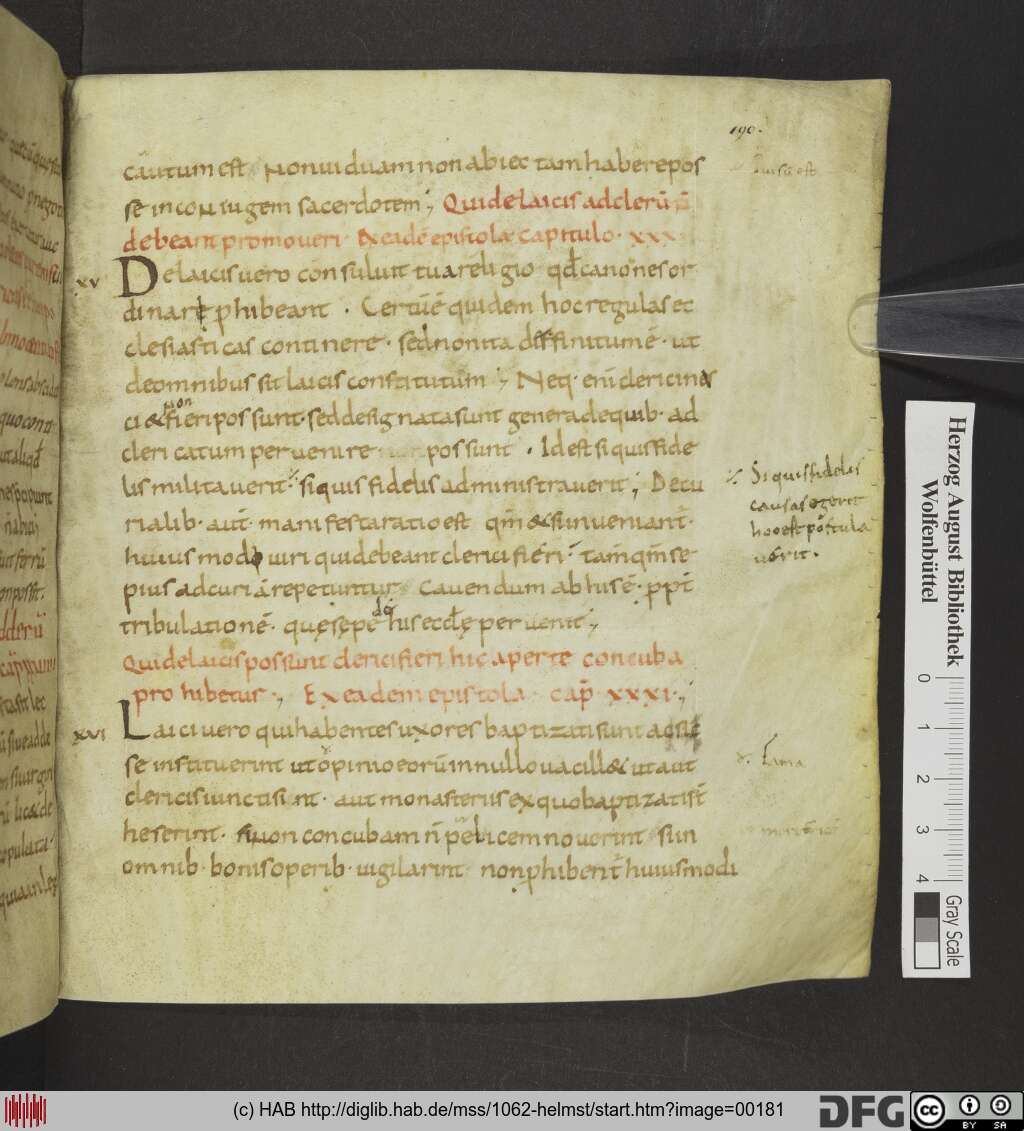 190.
cautum est Non viduam non abiectam habere pos
se in coniugem sacerdotem; Qui de laicis ad clerū ñ
debeant promoveri. Ex eadē epistola capitulo. xxx.
xv De laicis vero consuluit tua religio qđ canones or
dinare phibeant . Certūē quidem hoc regulas ec
clesiasticas continere. sed non ita diffinitum ē. ut
de omnibus sit laicis constitutum; Neq. enī clerici nes
ci & non fieri possunt. sed designata sunt genera de quib. ad
clericatum pervenire possunt . Id est si quis fide
lis militaverit. si quis fidelis administraverit; De cu
rialib. aut̄. manifesta ratio est qm̄ & si inveniant̄.
huius modi viri qui debeant clerici fieri. tam̄ qm̄ se
pius ad curiā repetuntur Cavendum ab his ē. ppt̄
tribulationē. quę sępe dē his ecclę pervenit;
Si quis fidelis
causas egerit
hoc est postula
verit.
Qui de laicis possunt clerici fieri hic aperte concuba
prohibetur; Ex eadem epistola cap̄ xxxi.;
xvi Laici vero qui habentes uxores baptizati sunt ac sic
se instituerint ut opinio eorū in nullo vacill& ut aut
clericis iuncti sint. aut monasteriis ex quo baptizati st̄
heserint. si non concubam n̄ pelicem noverint si in
omnib. bonis operib. vigilarint non phibent̄ huiusmodi
Herzog August Bibliothek
Wolfenbüttel
0
1
2
3
4
Gray Scale
(c) HAB http://diglib.hab.de/mss/1062-helmst/start.htm?image=00181
DFG
cc
BY SA